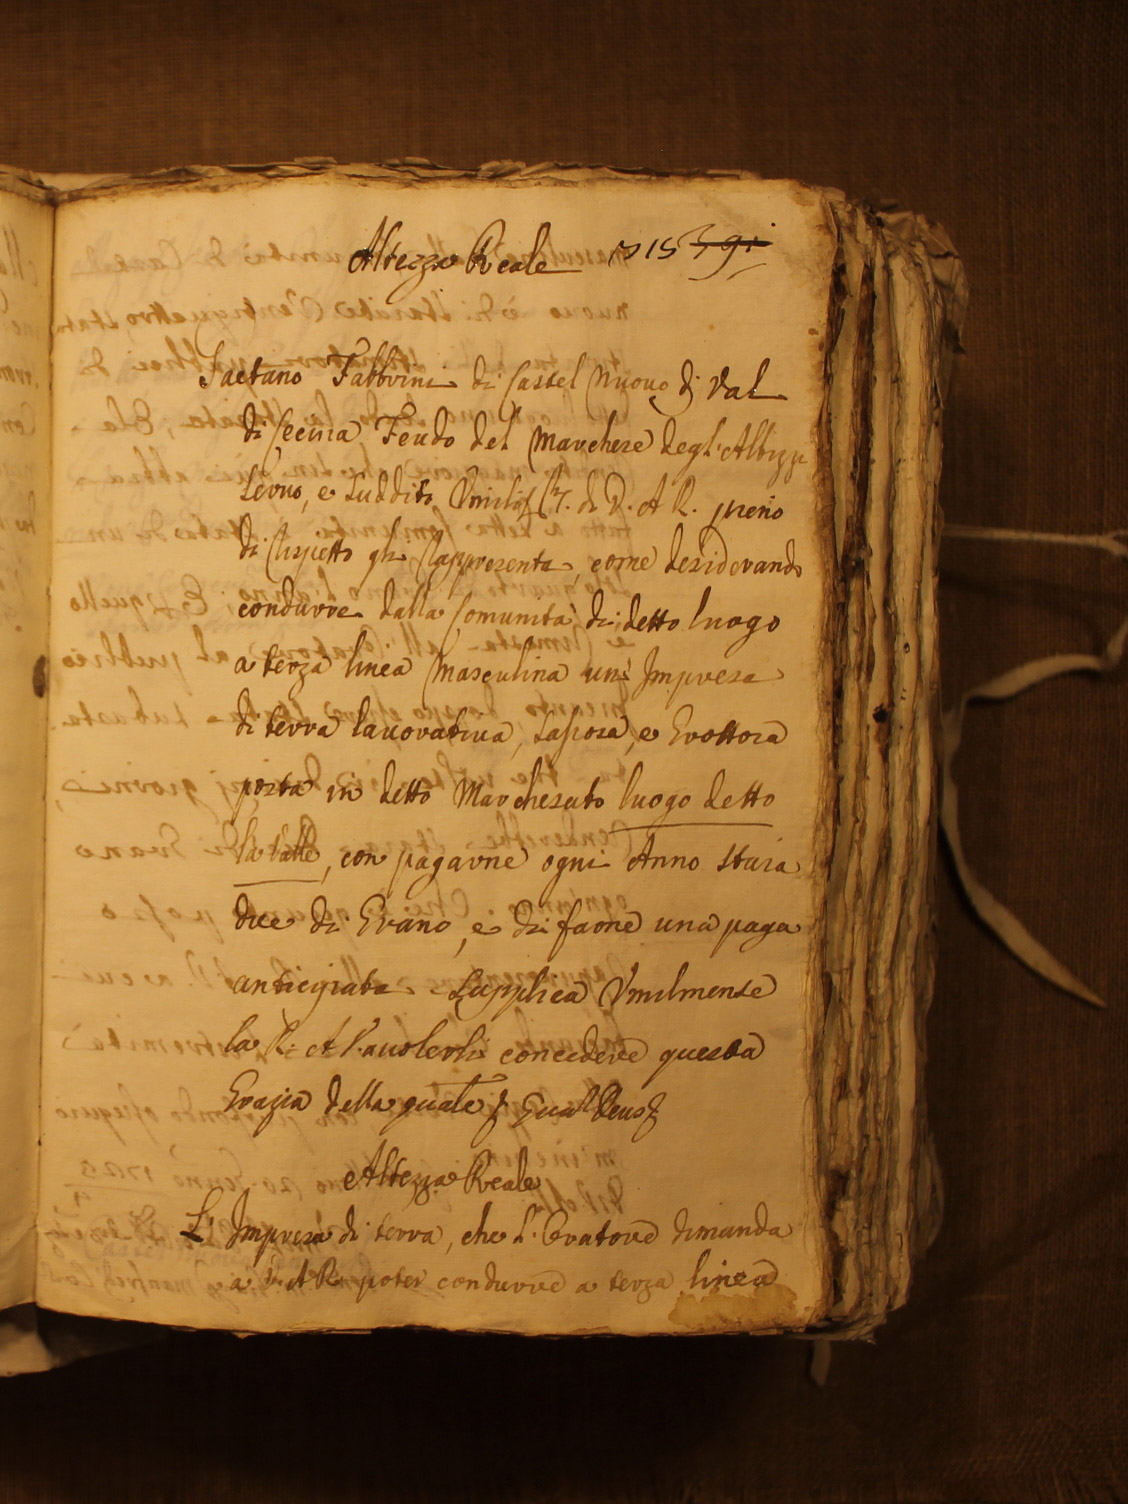 Altezza Reale 715 391
Gaetano Fabbrini di Castel Nuovo di Val
di Cecina Feudo del Marchese degl'Albizzi
servo, e suddito Umiliss.mo di V. A. R. pieno
di Rispetto gli Rappresenta, come desiderando
condurre dalla Comunità di detto luogo
a terza linea Masculina una Impresa
di terra lavorativa, Sasosa, e Grottosa
posta in detto Marchesato luogo detto
la Valle, con pagarne ogni Anno staia
due di Grano, e di farne una paga
anticipata Supplica Umilmente
la R. A. V. a volerli concedere questa
Grazia della quale Quam Deus
Altezza Reale
L' Impresa di terra, che l'Oratore dimanda
a V. A. R. poter condurre a terza linea